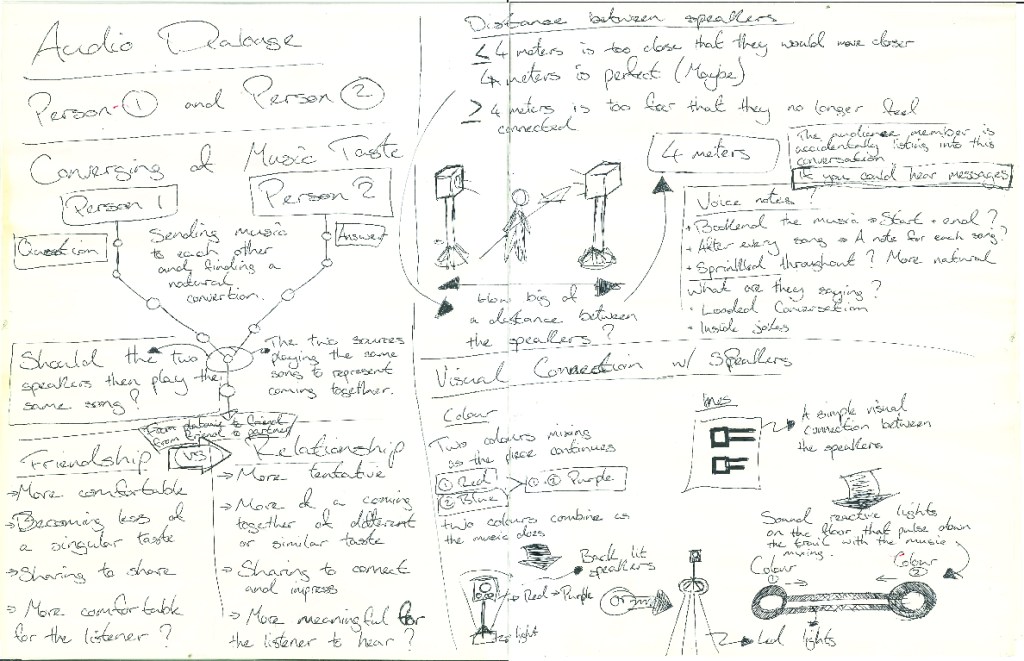 Audio Dialouge
Person ① and Person ②
Converging of Music Taste
Person 1
Person 2
Question
Answer
Sending music
to each other
and finding a
natural
convertion.
Should the two
speakers then play the
same song?
The two sources
playing the same
song to represent
coming together.
From platonic to friend
from friend to partner
Friendship
vs
Relationship
→ More comfortable
→ Becoming less of
a singular taste
→ Sharing to share
→ More comfortable
for the listener?
→ More tentative
→ More of a coming
together of different
or similar taste
→ Sharing to connect
and impress
→ More meaningful for
the listener to hear?
Distance between speakers
≤ 4 meters is too close that they would move closer
4 meters is perfect (Maybe)
≥ 4 meters is too far that they no longer feel
connected
4 meters
The audience member is
accidentally listing into this
conversation
If you could hear messages
Voice notes?
• Bookend the music → Start + end?
• After every song → A note for each song?
• Sprinkled throughout? More natural
What are they saying?
• Loaded Conversation
• Inside jokes
How big of
a distance between
the speakers?
Visual Connection w/ Speakers
Colour
Two colours mixing
as the piece continues
① Red
② Blue
①+② Purple
two colours combine as
the music does
Back lit
speakers
Red → Purple
light
Or
lines
A simple visual
connection between
the speakers
Sound reactive lights
on the floor that pulse down
the trail with the music
mixing.
Colour
①
Colour
②
Led lights